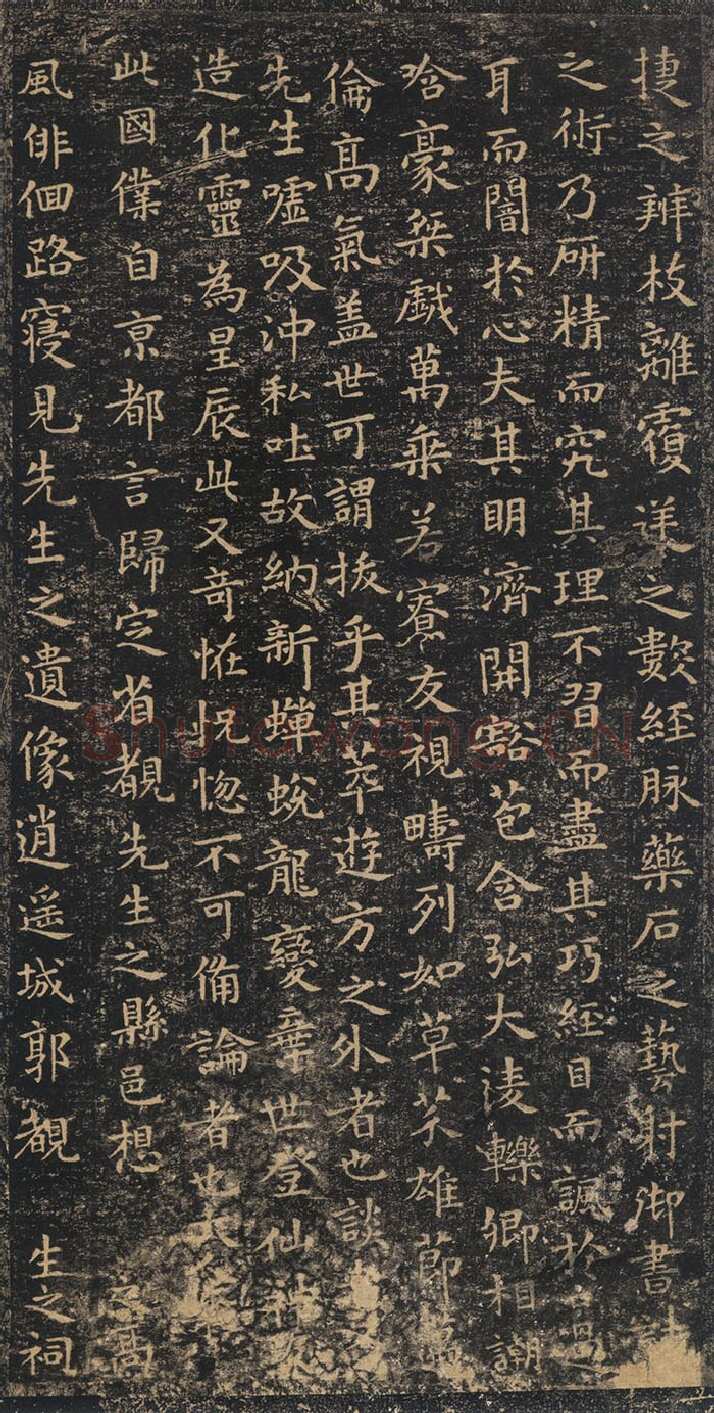 捷之辨枝離覆逆之數經脉藥石之藝射御書計
之術乃研精而究其理不習而盡其巧經目而諷於
耳而闇於心夫其明濟開豁苞含弘大淩轢卿相謿
哈豪桀戲萬乘若寮友視疇列如草芥雄節邁
倫高氣盖世可謂拔乎其萃遊方之外者也談
先生噓吸沖和吐故納新蟬蛻龍變棄世登仙神友
造化靈為星辰此又奇怪怳惚不可備論者也大
此國僕自京都言歸定省覩先生之縣邑想 高
風俳佪路寢見先生之遺像逍遥城郭覩 生之祠
Shufawang.CN